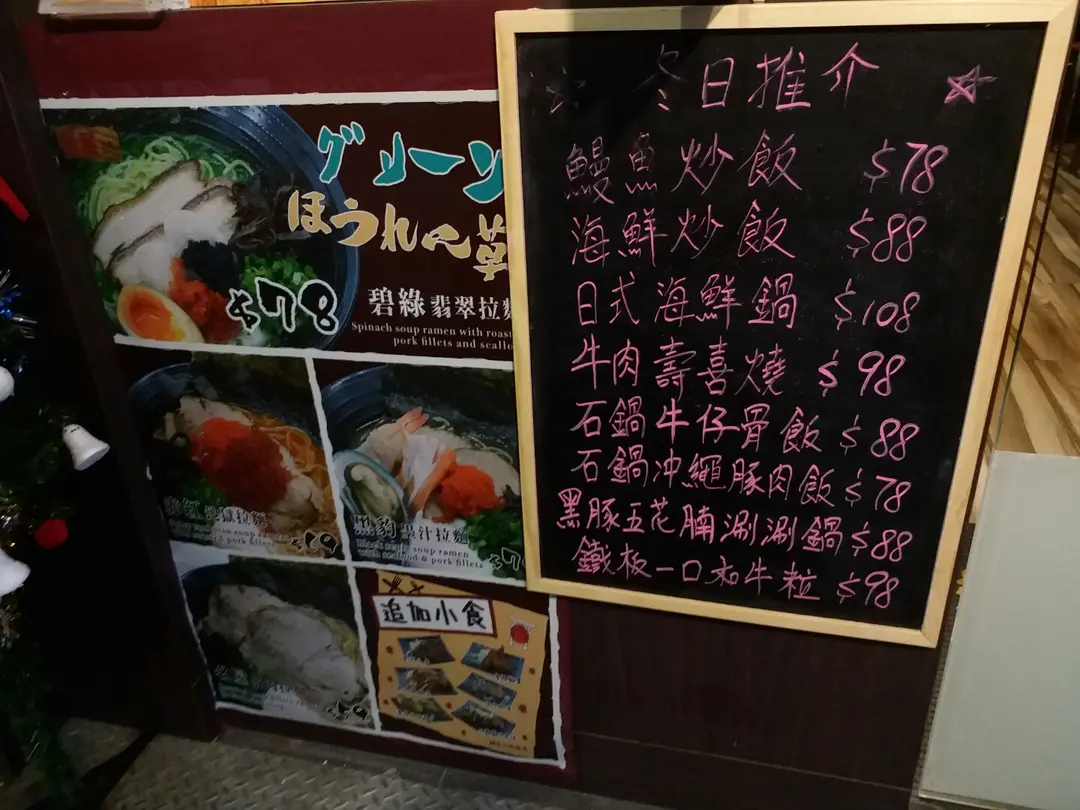 グリーン
ほうれん草
$78
碧綠翡翠拉麵
Spinach soup ramen with roast
pork fillets and scallo
拉麵
soup ramen
pork fillets
黑豹墨汁拉麵
soup ramen
with seafood & pork fillets
$7
追加小食
冬日推介
鰻魚炒飯 $78
海鮮炒飯 $88
日式海鮮鍋 $108
牛肉壽喜燒 $98
石鍋牛仔骨飯 $88
石鍋沖繩豚肉飯 $78
黑豚五花腩涮涮鍋 $88
鐵板一口和牛粒 $98